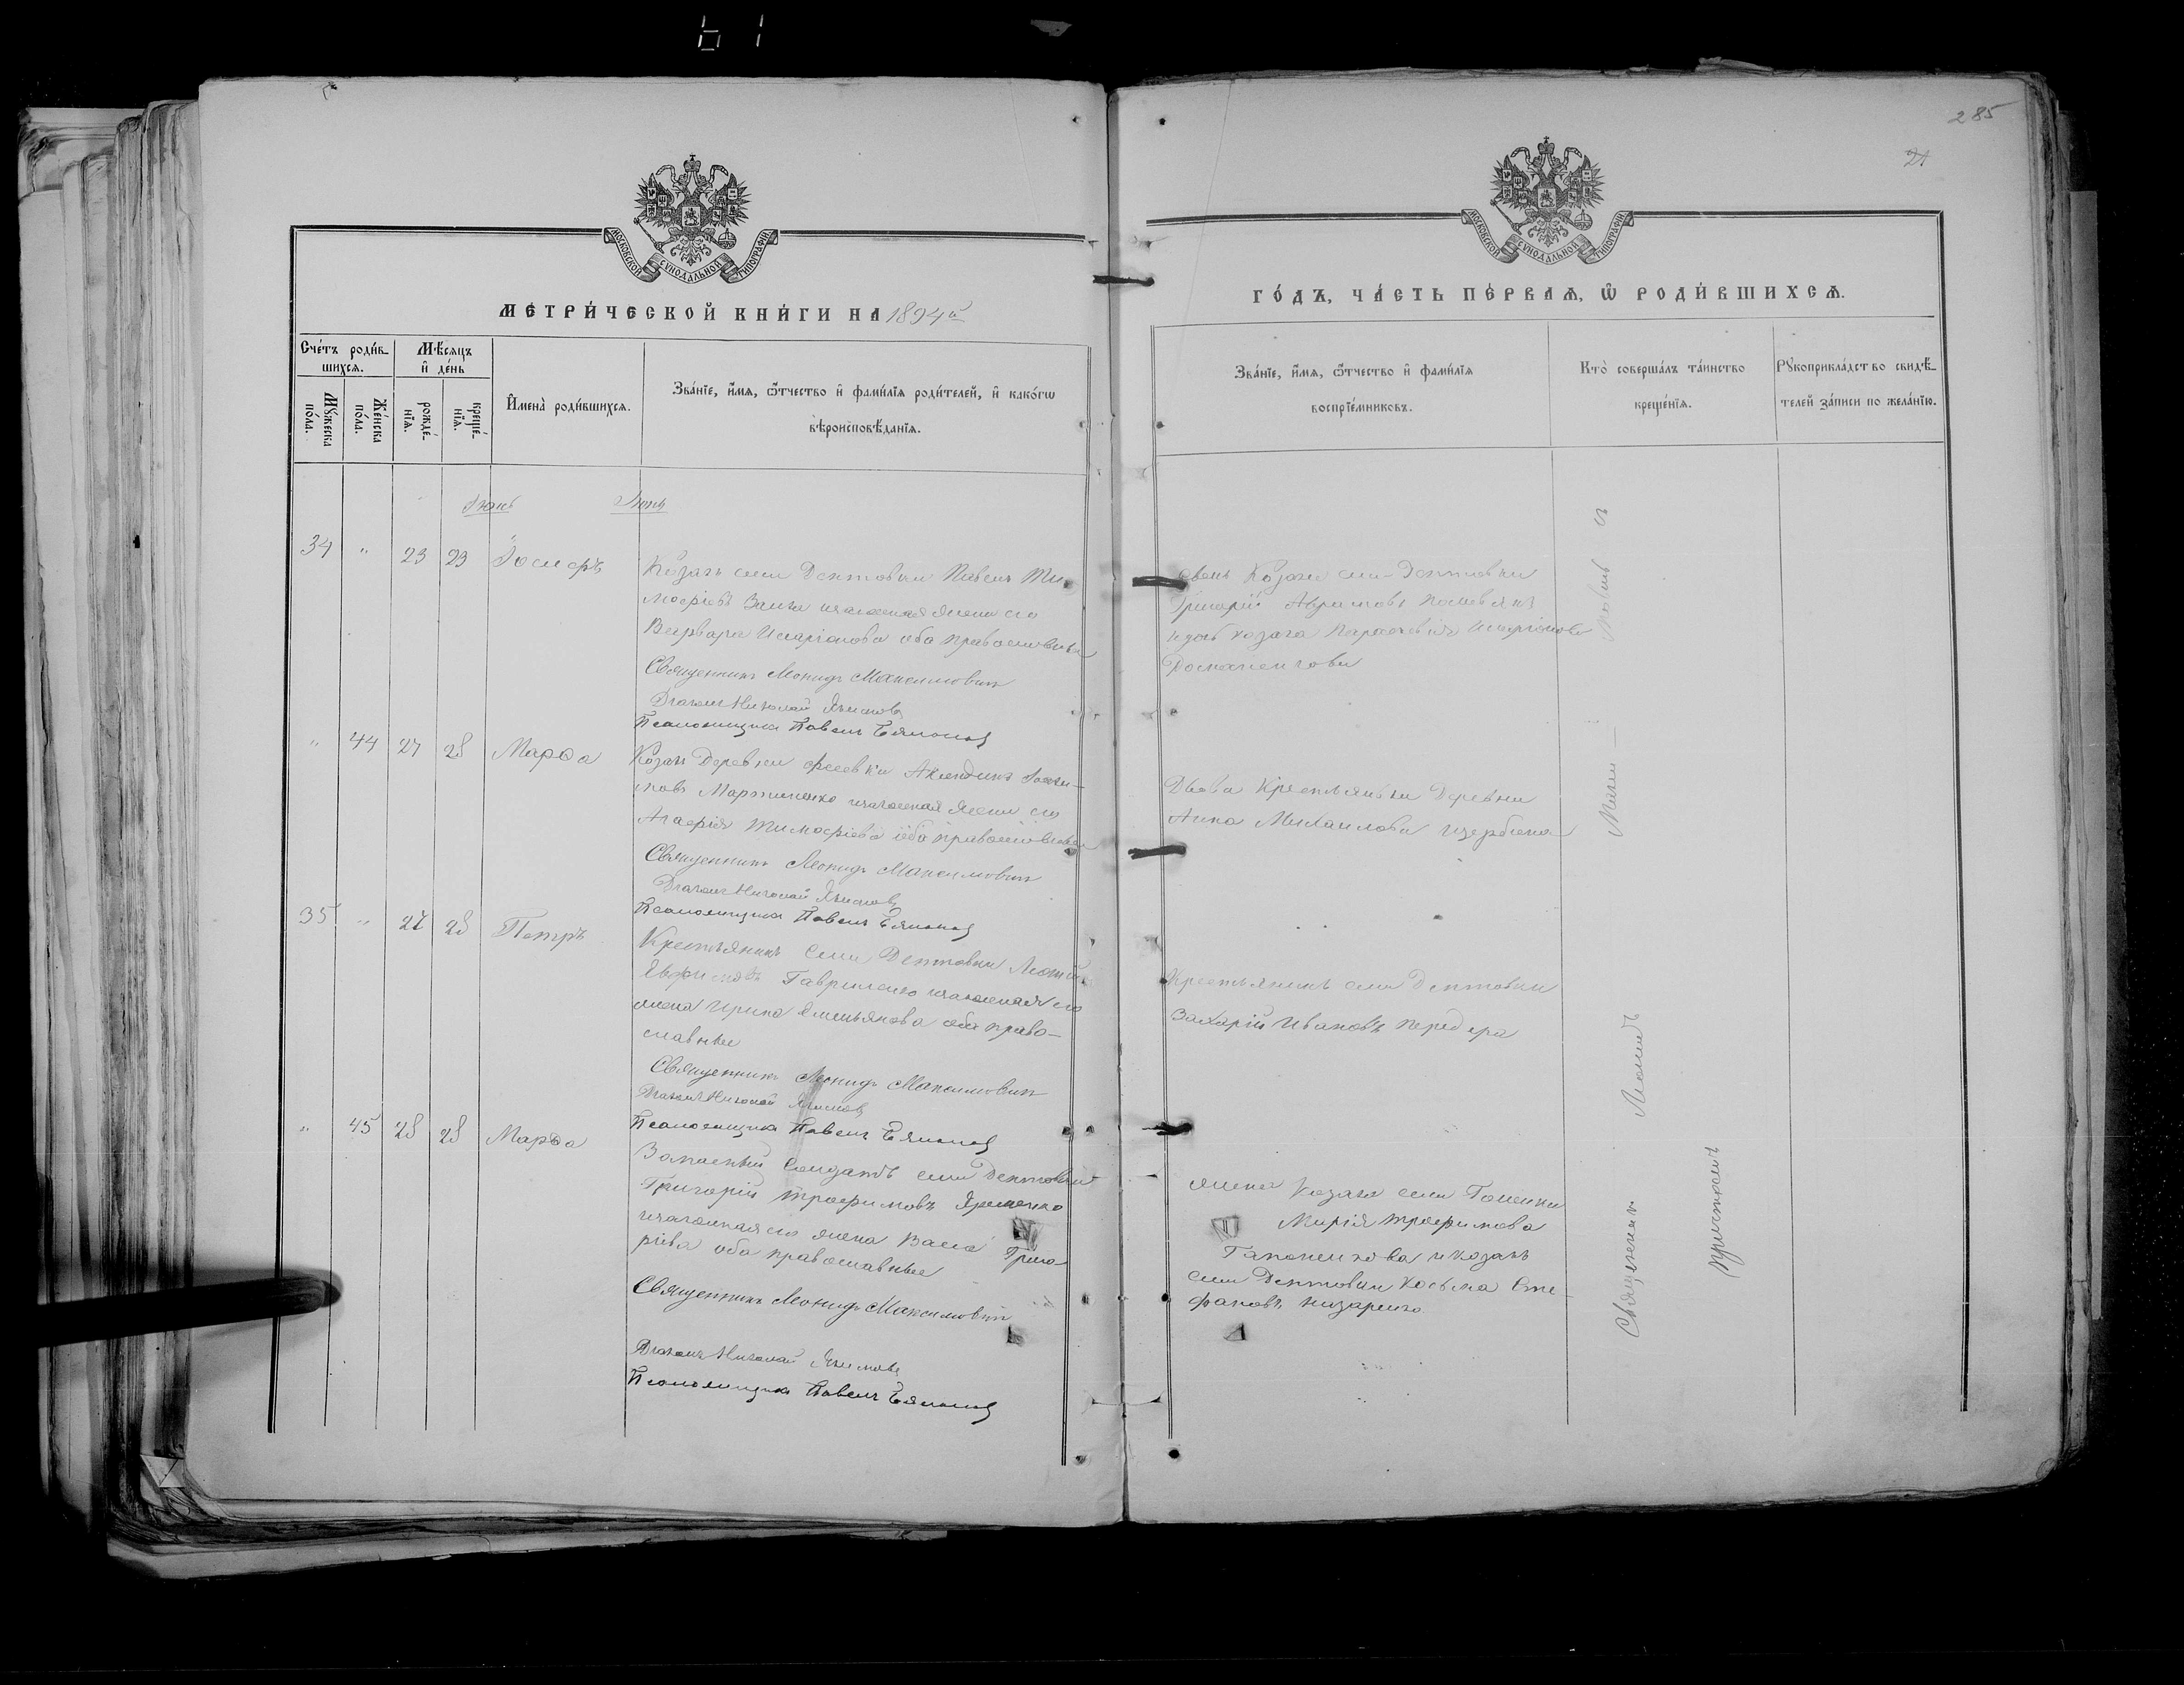 285
21
МОСКОВСКОЙ СУНОДАЛЬНОЙ ТИПОГРАФІИ
МОСКОВСКОЙ СУНОДАЛЬНОЙ ТИПОГРАФІИ
МЕТРИ́ЧЕСКОЙ КНИ́ГИ НА 1894й
ГО́ДЪ, ЧА́СТЬ ПЕ́РВАЯ, Ѡ РОДИ́ВШИХСЯ.
Сче́тъ роди́в-
шихся.
Мꙋжеска по́ла.
Же́нска по́ла.
Мѣ́сяцъ и де́нь
рожде́-нїя.
креще́-нїя.
Имена̀ роди́вшихся.
Зва́нїе, и́мя, ѻ҆́тчество и фами́лїя роди́телей, и како́гѡ
вѣроисповѣ́данїя.
Зва́нїе, и́мя, ѻ҆́тчество и фами́лїя
воспрїе́мниковъ.
Кто̀ соверша́лъ та́инство
креще́нїя.
Рꙋкоприкла́дство свидѣ́-
телей за́писи по жела́нїю.
Іюнь Іюнь
34 " 23 23 Іосифъ
Козакъ села Дептовки Павелъ Ти-
мофіевъ законная жена его
Варвара Иларіонова оба православные
Священникъ Леонидъ Максимович
Діаконъ Николай Якимовъ
Псаломщикъ Павелъ
Козакъ села Дептовки
Григорій Аврамовъ
козака Параскевія Иларіонова
" 44 27 28 Марѳа
Козакъ Деревни
Мартиненко законная жена его
Агафія Тимофіева оба православные
Священникъ Леонидъ Максимович
Діаконъ Николай Якимовъ
Псаломщикъ Павелъ
Крестьянки Деревни
Анна Михаилова
35 " 27 28 Петръ
Крестьянинъ села Дептовки
Евфимовъ Гавриленко законная его
жена Ирина Емельянова оба право-
славные
Священникъ Леонидъ Максимович
Діаконъ Николай Якимовъ
Псаломщикъ Павелъ
Крестьянинъ села Дептовки
Захарій Ивановъ Передера
" 45 28 28 Марѳа
Запасный Солдатъ села Дептовки
Григорій Трофимовъ Яременко
законная его жена Васса Григо-
ріева оба православные
Священникъ Леонидъ Максимович
Діаконъ Николай Якимовъ
Псаломщикъ Павелъ
жена Козака села
Марія Трофимова
Гапоненкова и козакъ
села Дептовки Косьма Сте-
фановъ Назаренко
Священникъ Леонидъ